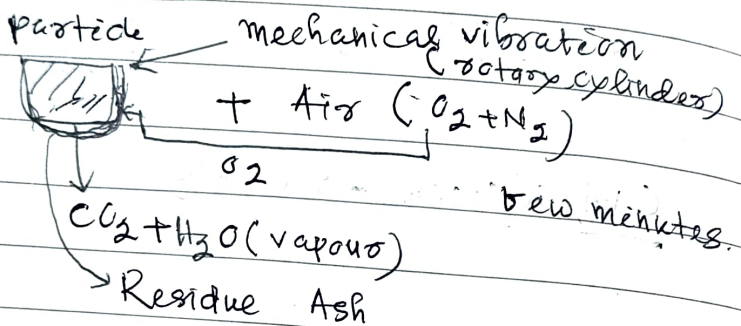 particle
mechanical vibration
(rotary cylinder)
+ Air (O2+N2)
O2
few minutes.
CO2+H2O(vapour)
Residue Ash